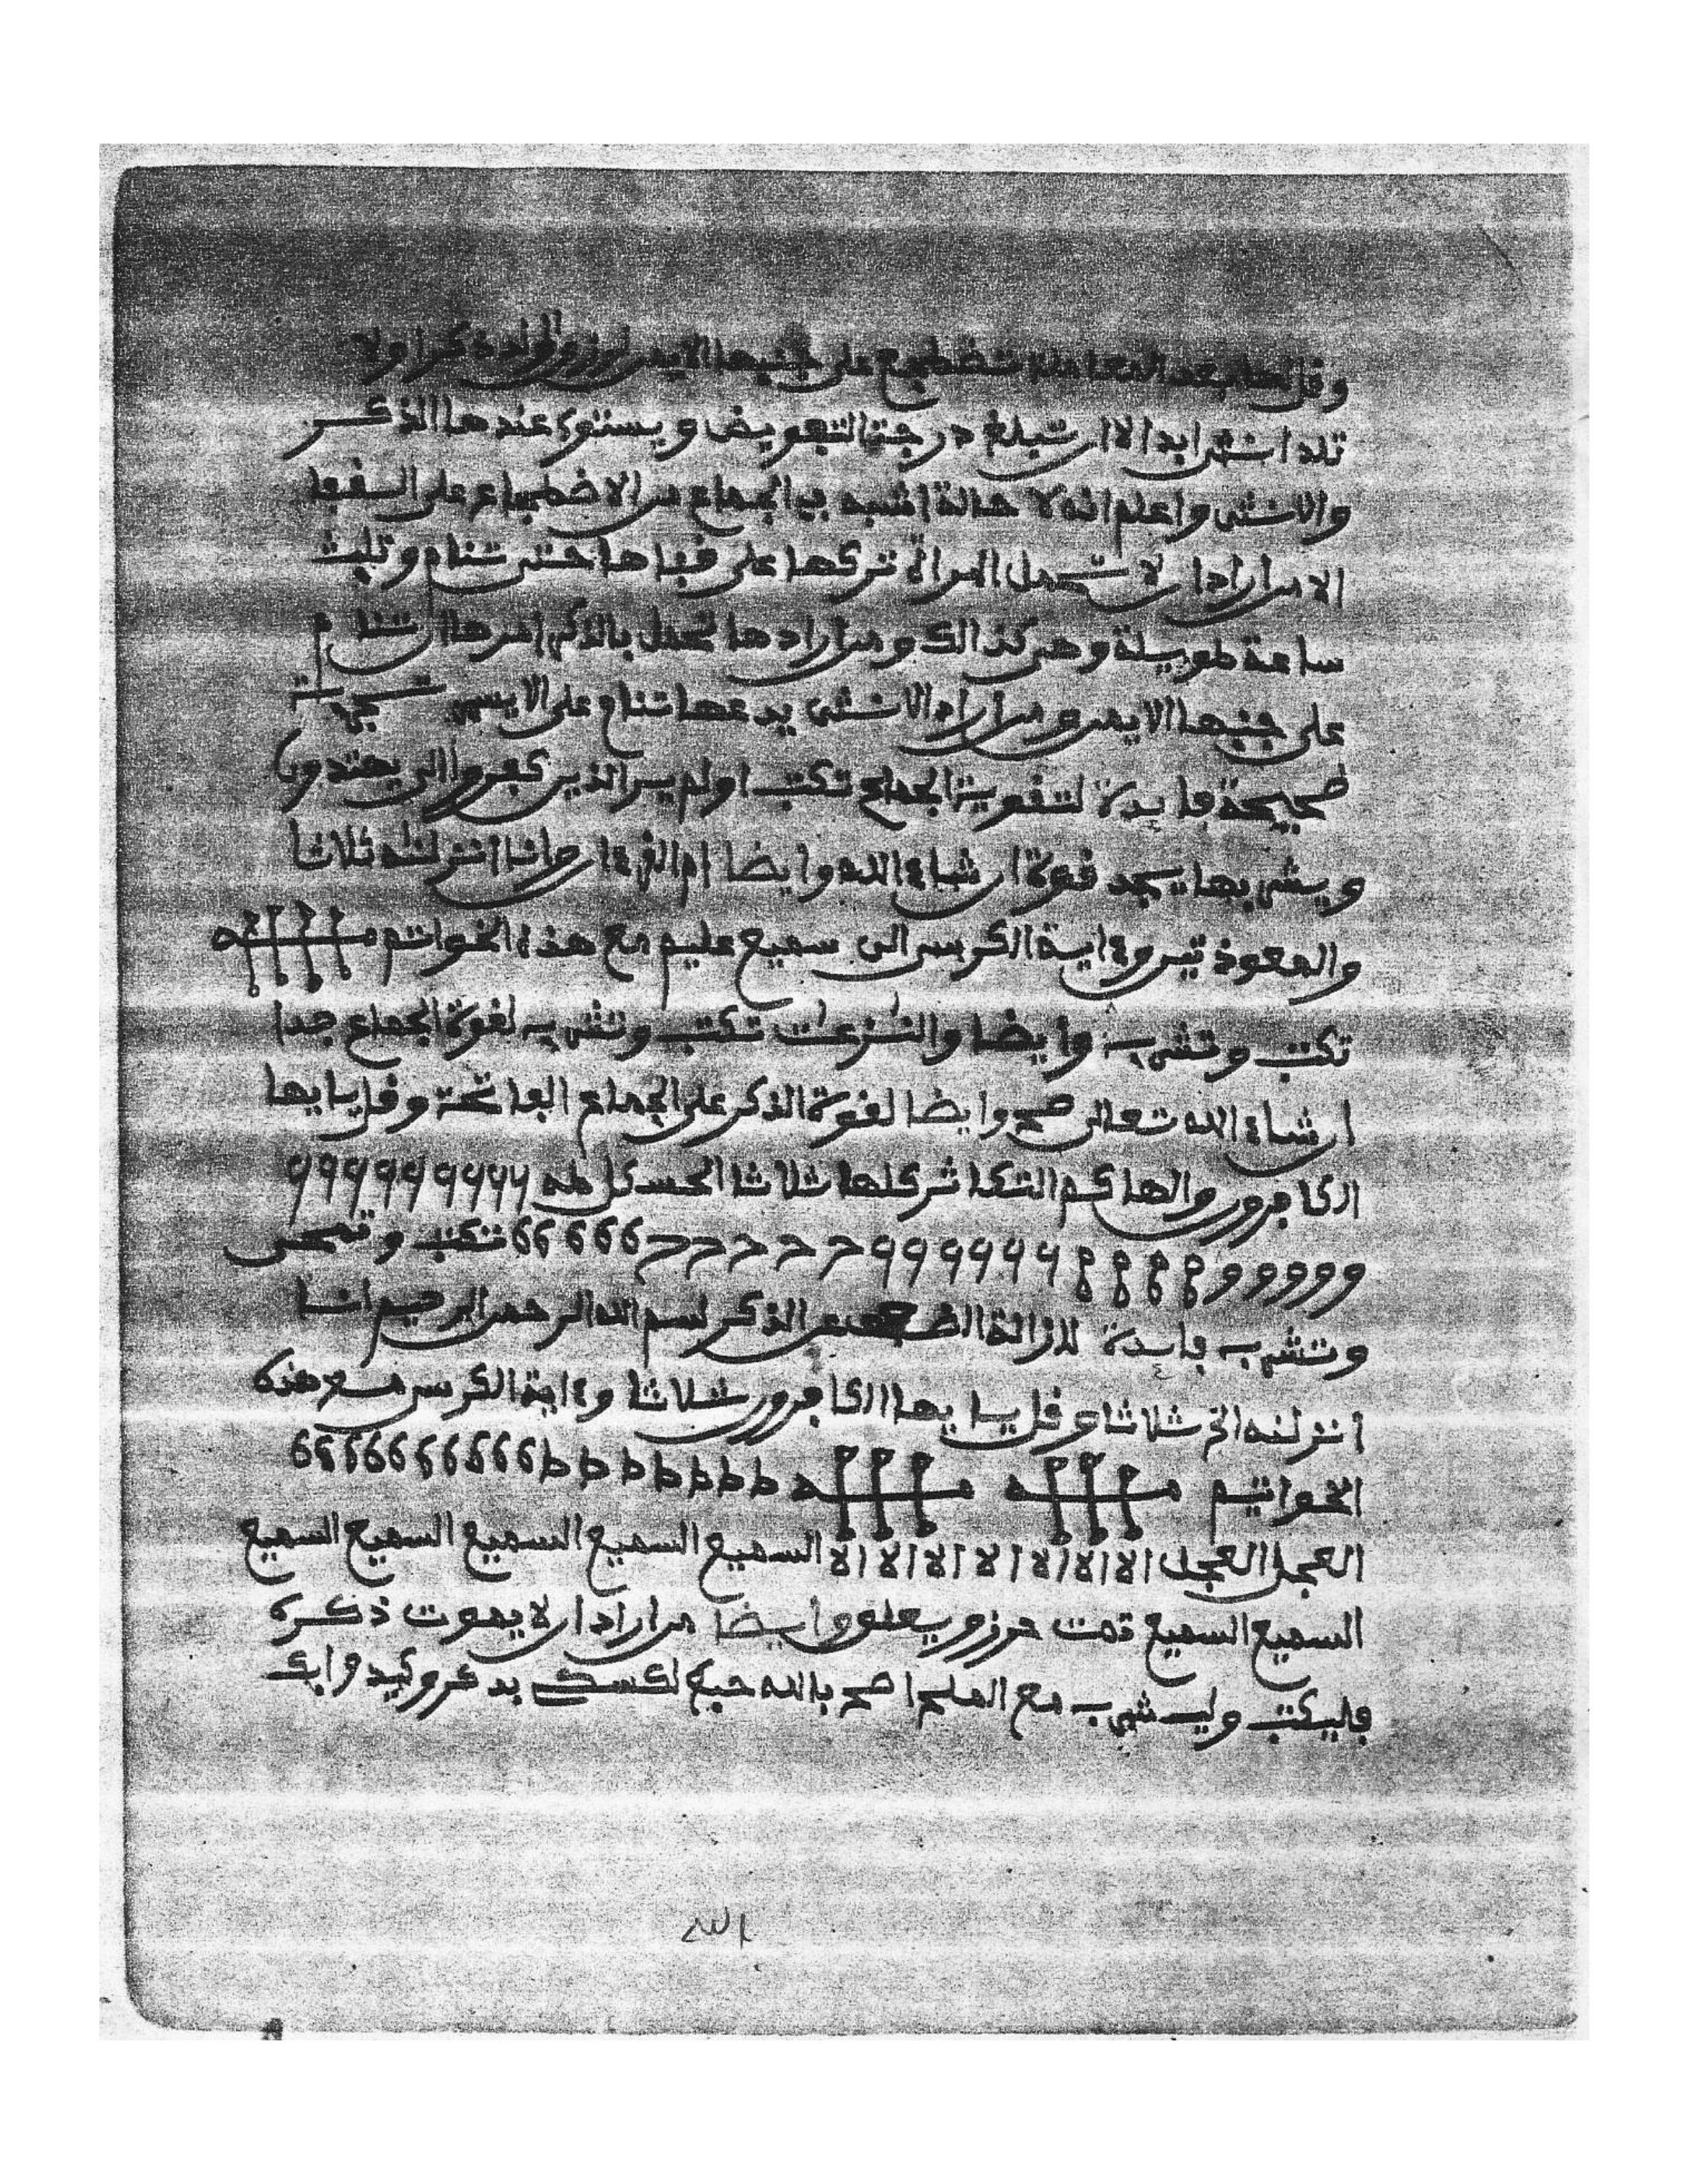 وقل لها بعد المعاملة تضطجع على جنبها الايمن ذكرا ولا
تلد انثى ابدا الا ان تبلغ درجة التعويض ويستوي عندها الذكر
والانثى واعلم انه لا حالة اشبه في الجماع من الاضطجاع على القفا
الا من اراد ان لا تحمل المرأة تركها على قفاها حتى تنام وتلبث
ساعة طويلة وهي كذالك ومن اراد ها تحمل بالذكر امرها ان تنام
على جنبها الايمن ومن اراد الانثى يدعها تنام على الايسر
صحيحة فايدة لتقوية الجماع تكتب اولم ير الذين كفروا الى
ويشربها يجد قوة ان شاء الله وايضا ام القرءان وانا انزلنه ثلاثا
والمعوذتين وءاية الكرسي الى سميع عليم مع هذه الخواتم
تكتب وتشربه وايضا والنزعت تكتب وتشربه لقوة الجماع جدا
ان شاء الله تعالى صح وايضا لقوة الذكر على الجماع الفاتحة وقل يايها
الكافرون والهاكم التكاثر كلها ثلاثا
تكتب وتمحى
وتشربه فايدة لازالة الضعف عن الذكر بسم الله الرحمن الرحيم انا
انزلنه الخ ثلاثا وقل يايها الكافرون ثلاثا وءاية الكرسي مع هذه
الخواتيم ط ط ط ط ط ط ط
العجل العجل الا الا الا الا الا الا الا الا السميع السميع السميع السميع السميع
السميع السميع تمت وايضا من اراد ان لا يموت ذكره
فليكتب وليشرب مع الملح صح بالله
الله